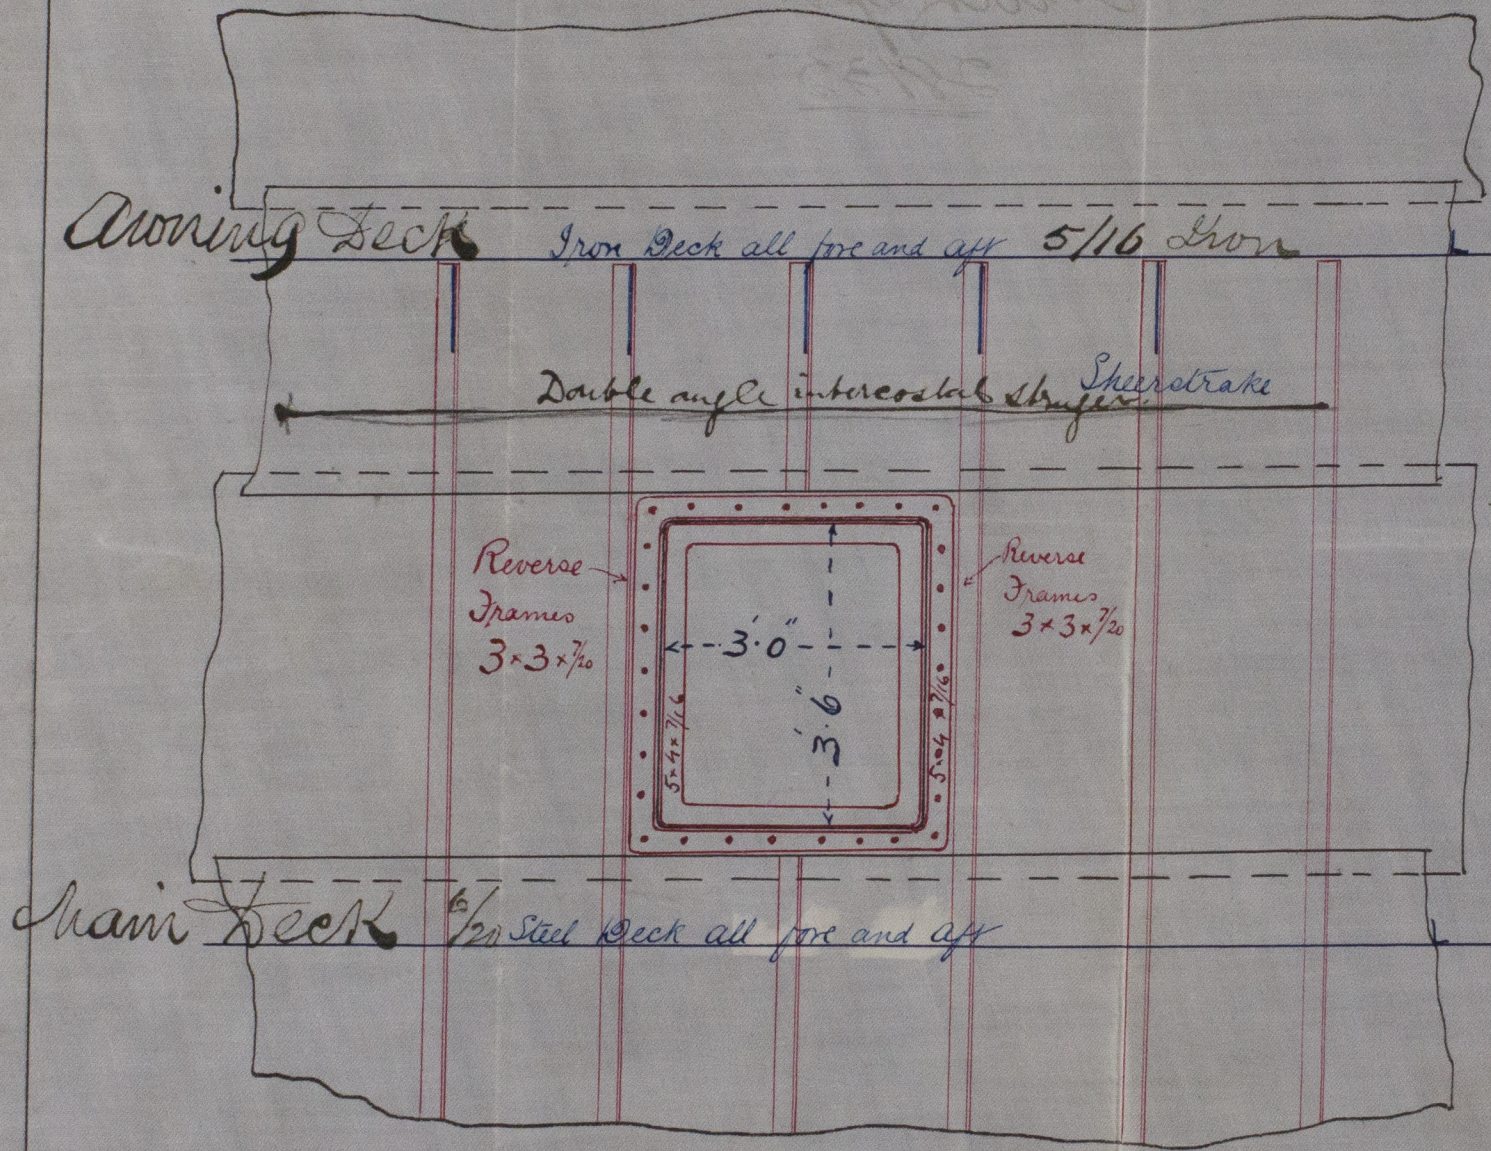 Awning Deck Iron Deck all fore and aft 5/16 Iron
Double angle intercostal stringer Sheerstrake
Reverse
Frames
3 × 3 × 7/20
Reverse
Frames
3 × 3 × 7/20
3' 0"
3' 6"
5 × 4 × 7/16
5 × 4 × 7/16
Main Deck 6/20 Steel Deck all fore and aft